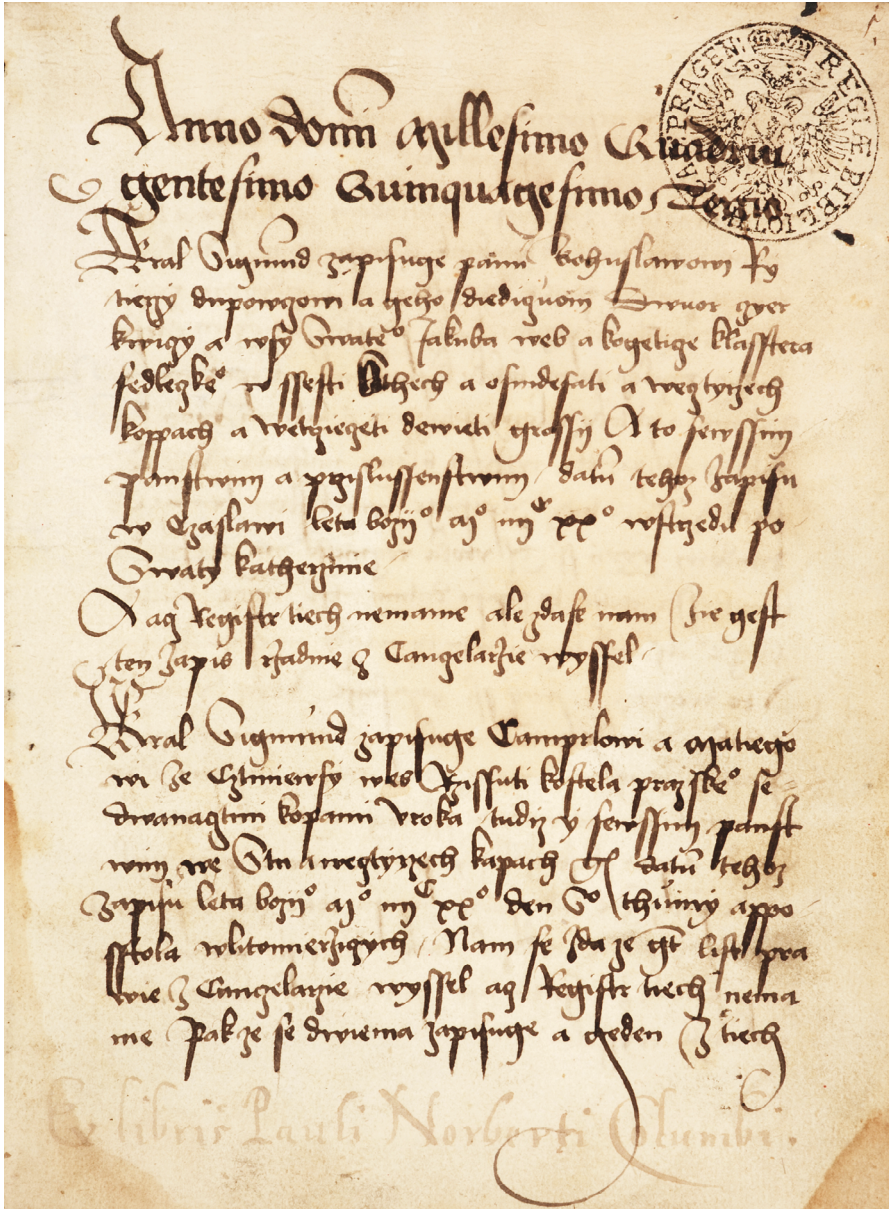 Anno domini Millesimo Quadrin
gentesimo Quinquagesimo Tercio
Kral Sigmund zapisuge panu Bohuslawowi Ry
tiegi a geho diediczuom Dwuor
a wsy Swateº Jakuba wes a klasstera
sedleczkeº w ssesti Sthech a osmdesati a wcztyrzech
koppach a dewieti grossij A to sewssim
panstwim a przislussenstwim datum tehoz zapisu
w Czaslawi leta bozijº Mº iiijC xxº wstrzedu po
Swaty katherzinie
A acz Registr tiech nemame ale zdase nam zie gest
ten zapis rzadnie z Canzelarzie wyssel
Kral Sigmund zapisuge Camprlowi a Matiego
wi ze wes Rzissuti kostela prazskeº se
dwanagtmi kopami vroka tudiz y sewssim panst
wim we Stu a wcztyrzech kapach gr datum tehoz
zapisu leta bozijº Mº iiijC xxº den Sº thuomy appo
sstola wlitomierziczych Nam se zda ze gt list pra
wie z Canzelarzie wyssel acz Registr tiech nema
me Pak ze se dwiema zapisuge a geden z tiech
Ex libris Pauli Norberti Columbi.
REGIÆ BIBLIOTH: PRAGEN: